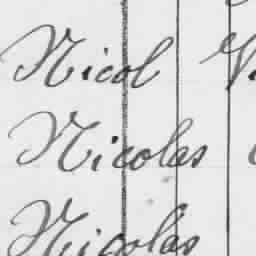 Nicol V.
Nicolas
Nicolas